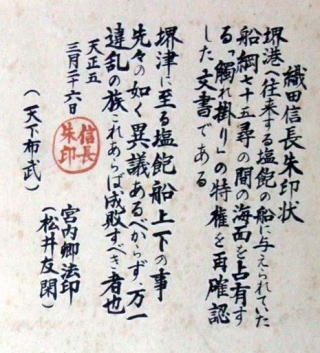 織田信長朱印状
堺港へ往来する塩飽の船に与えられていた
船綱七十五尋の間の海面を占有す
る「觸れ掛り」の特権を再確認
した文書である
堺津に至る塩飽船上下の事
先々の如く異議あるべからず、万一
違乱の族これあらば成敗すべき者也
天正五
三月二十六日
信長
朱印
宮内卿法印
(天下布武)
(松井友閑)